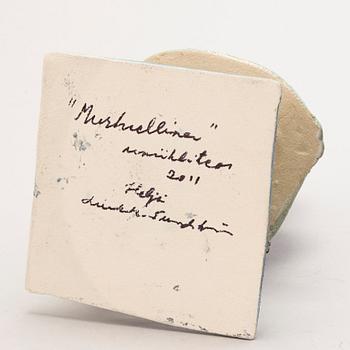 "Murtuellinen"
uniikkiteos
2011
Heljä
Liukko-Sundström